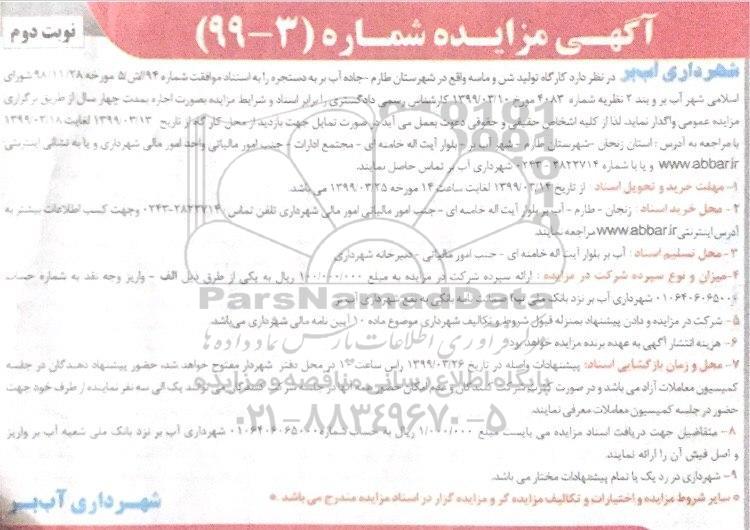 آگهی مزایده شماره (۳-۹۹)
نوبت دوم
شهرداری آب‌بر در نظر دارد کارگاه تولید شن و ماسه واقع در شهرستان طارم -جاده آب بر به دستجره را به استناد موافقت شماره ۹۴/الش/۵ مورخه ۹۸/۱۱/۲۸ شورای
اسلامی شهر آب بر و بند ۲ نظریه شماره ۴۰۸۳ مورخ ۱۳۹۹/۰۳/۱۰ کارشناس رسمی دادگستری را برابر اسناد و شرایط مزایده بصورت اجاره بمدت چهار سال از طریق برگزاری
مزایده عمومی واگذار نماید. لذا از کلیه اشخاص حقیقی و حقوقی دعوت بعمل می آید در صورت تمایل جهت بازدید از محل کار گاه از تاریخ ۱۳۹۹/۰۳/۱۳ لغایت ۱۳۹۹/۰۳/۱۸
با مراجعه به آدرس : استان زنجان -شهرستان طارم - شهر آب بر - بلوار آیت اله خامنه ای - مجتمع ادارات - جنب امور مالیاتی واحد امور مالی شهرداری و یا به نشانی اینترنتی
www.abbar.ir و یا با شماره ۳۲۸۲۳۷۱۴-۰۲۴ شهرداری آب بر تماس حاصل نمایند.
۱- مهلت خرید و تحویل اسناد از تاریخ ۱۳۹۹/۰۳/۱۴ لغایت ساعت ۱۴ مورخه ۱۳۹۹/۰۳/۲۵ می باشد.
۲- محل خرید اسناد : زنجان - طارم - آب بر بلوار آیت اله خامنه ای - جنب امور مالیاتی امور مالی شهرداری تلفن تماس ۳۲۸۲۳۷۱۴-۰۲۴ وجهت کسب اطلاعات بیشتر به
آدرس اینترنتی www.abbar.ir مراجعه نمایند.
۳- محل تسلیم اسناد : آب بر بلوار آیت اله خامنه ای - جنب امور مالیاتی - دبیرخانه شهرداری
۴- میزان و نوع سپرده شرکت در مزایده : ارائه سپرده شرکت در مزایده به مبلغ ۱۰۰/۰۰۰/۰۰۰ ریال به یکی از طرق ذیل الف - واریز وجه نقد به شماره حساب
۰۱۰۶۴۰۶۰۶۵۰۰۰ شهرداری آب بر نزد بانک ملی ب) ضمانت نامه بانکی به نفع شهرداری آب بر
۵- شرکت در مزایده و دادن پیشنهاد بمنزله قبول شروط و تکالیف شهرداری موضوع ماده ۱۰ آیین نامه مالی شهرداری می باشد.
۶- هزینه انتشار آگهی به عهده برنده مزایده خواهد بود.
۷- محل و زمان بازگشایی اسناد: پیشنهادات واصله در تاریخ ۱۳۹۹/۰۳/۲۶ راس ساعت ۱۰ در محل دفتر شهردار مفتوح خواهد شد، حضور پیشنهاد دهندگان در جلسه
کمیسیون معاملات آزاد می باشد و در صورت کثرت شرکت کنندگان و عدم امکان حضور همه آنها در جلسه شرکت کنندگان می توانند یک الی سه نفر نماینده از طرف خود جهت
حضور در جلسه کمیسیون معاملات معرفی نمایند.
۸- متقاضیان جهت دریافت اسناد مزایده می بایست مبلغ ۱/۰۰۰/۰۰۰ ریال به حساب شماره ۰۱۰۶۴۰۶۰۶۵۰۰۰ شهرداری آب بر نزد بانک ملی شعبه آب بر واریز
و اصل فیش آن را ارائه نمایند.
۹- شهرداری در رد یک یا تمام پیشنهادات مختار می باشد.
* سایر شروط مزایده و اختیارات و تکالیف مزایده گر و مزایده گزار در اسناد مزایده مندرج می باشد.*
شهرداری آب‌بر
ParsNamadData
پایگاه اطلاع رسانی مناقصه و مزایده
۰۲۱-۸۸۳۴۹۶۷۰-۵